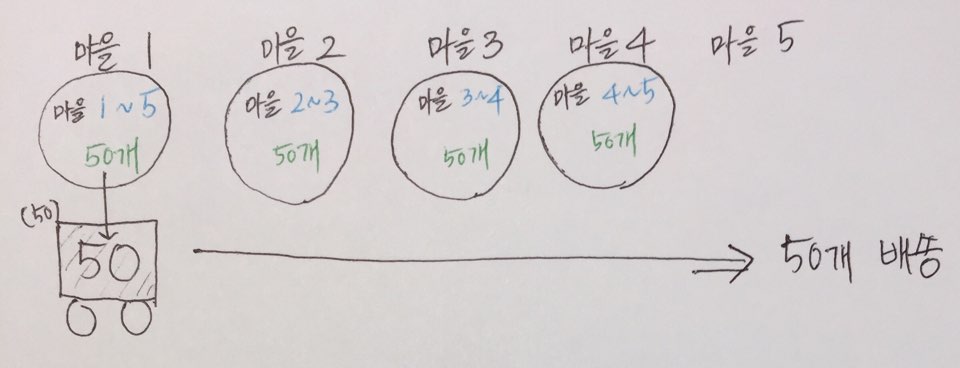 마을 1 마을 2 마을 3 마을 4 마을 5
마을 1~5 마을 2~3 마을 3~4 마을 4~5
50개 50개 50개 50개
(50)
50
50개 배송